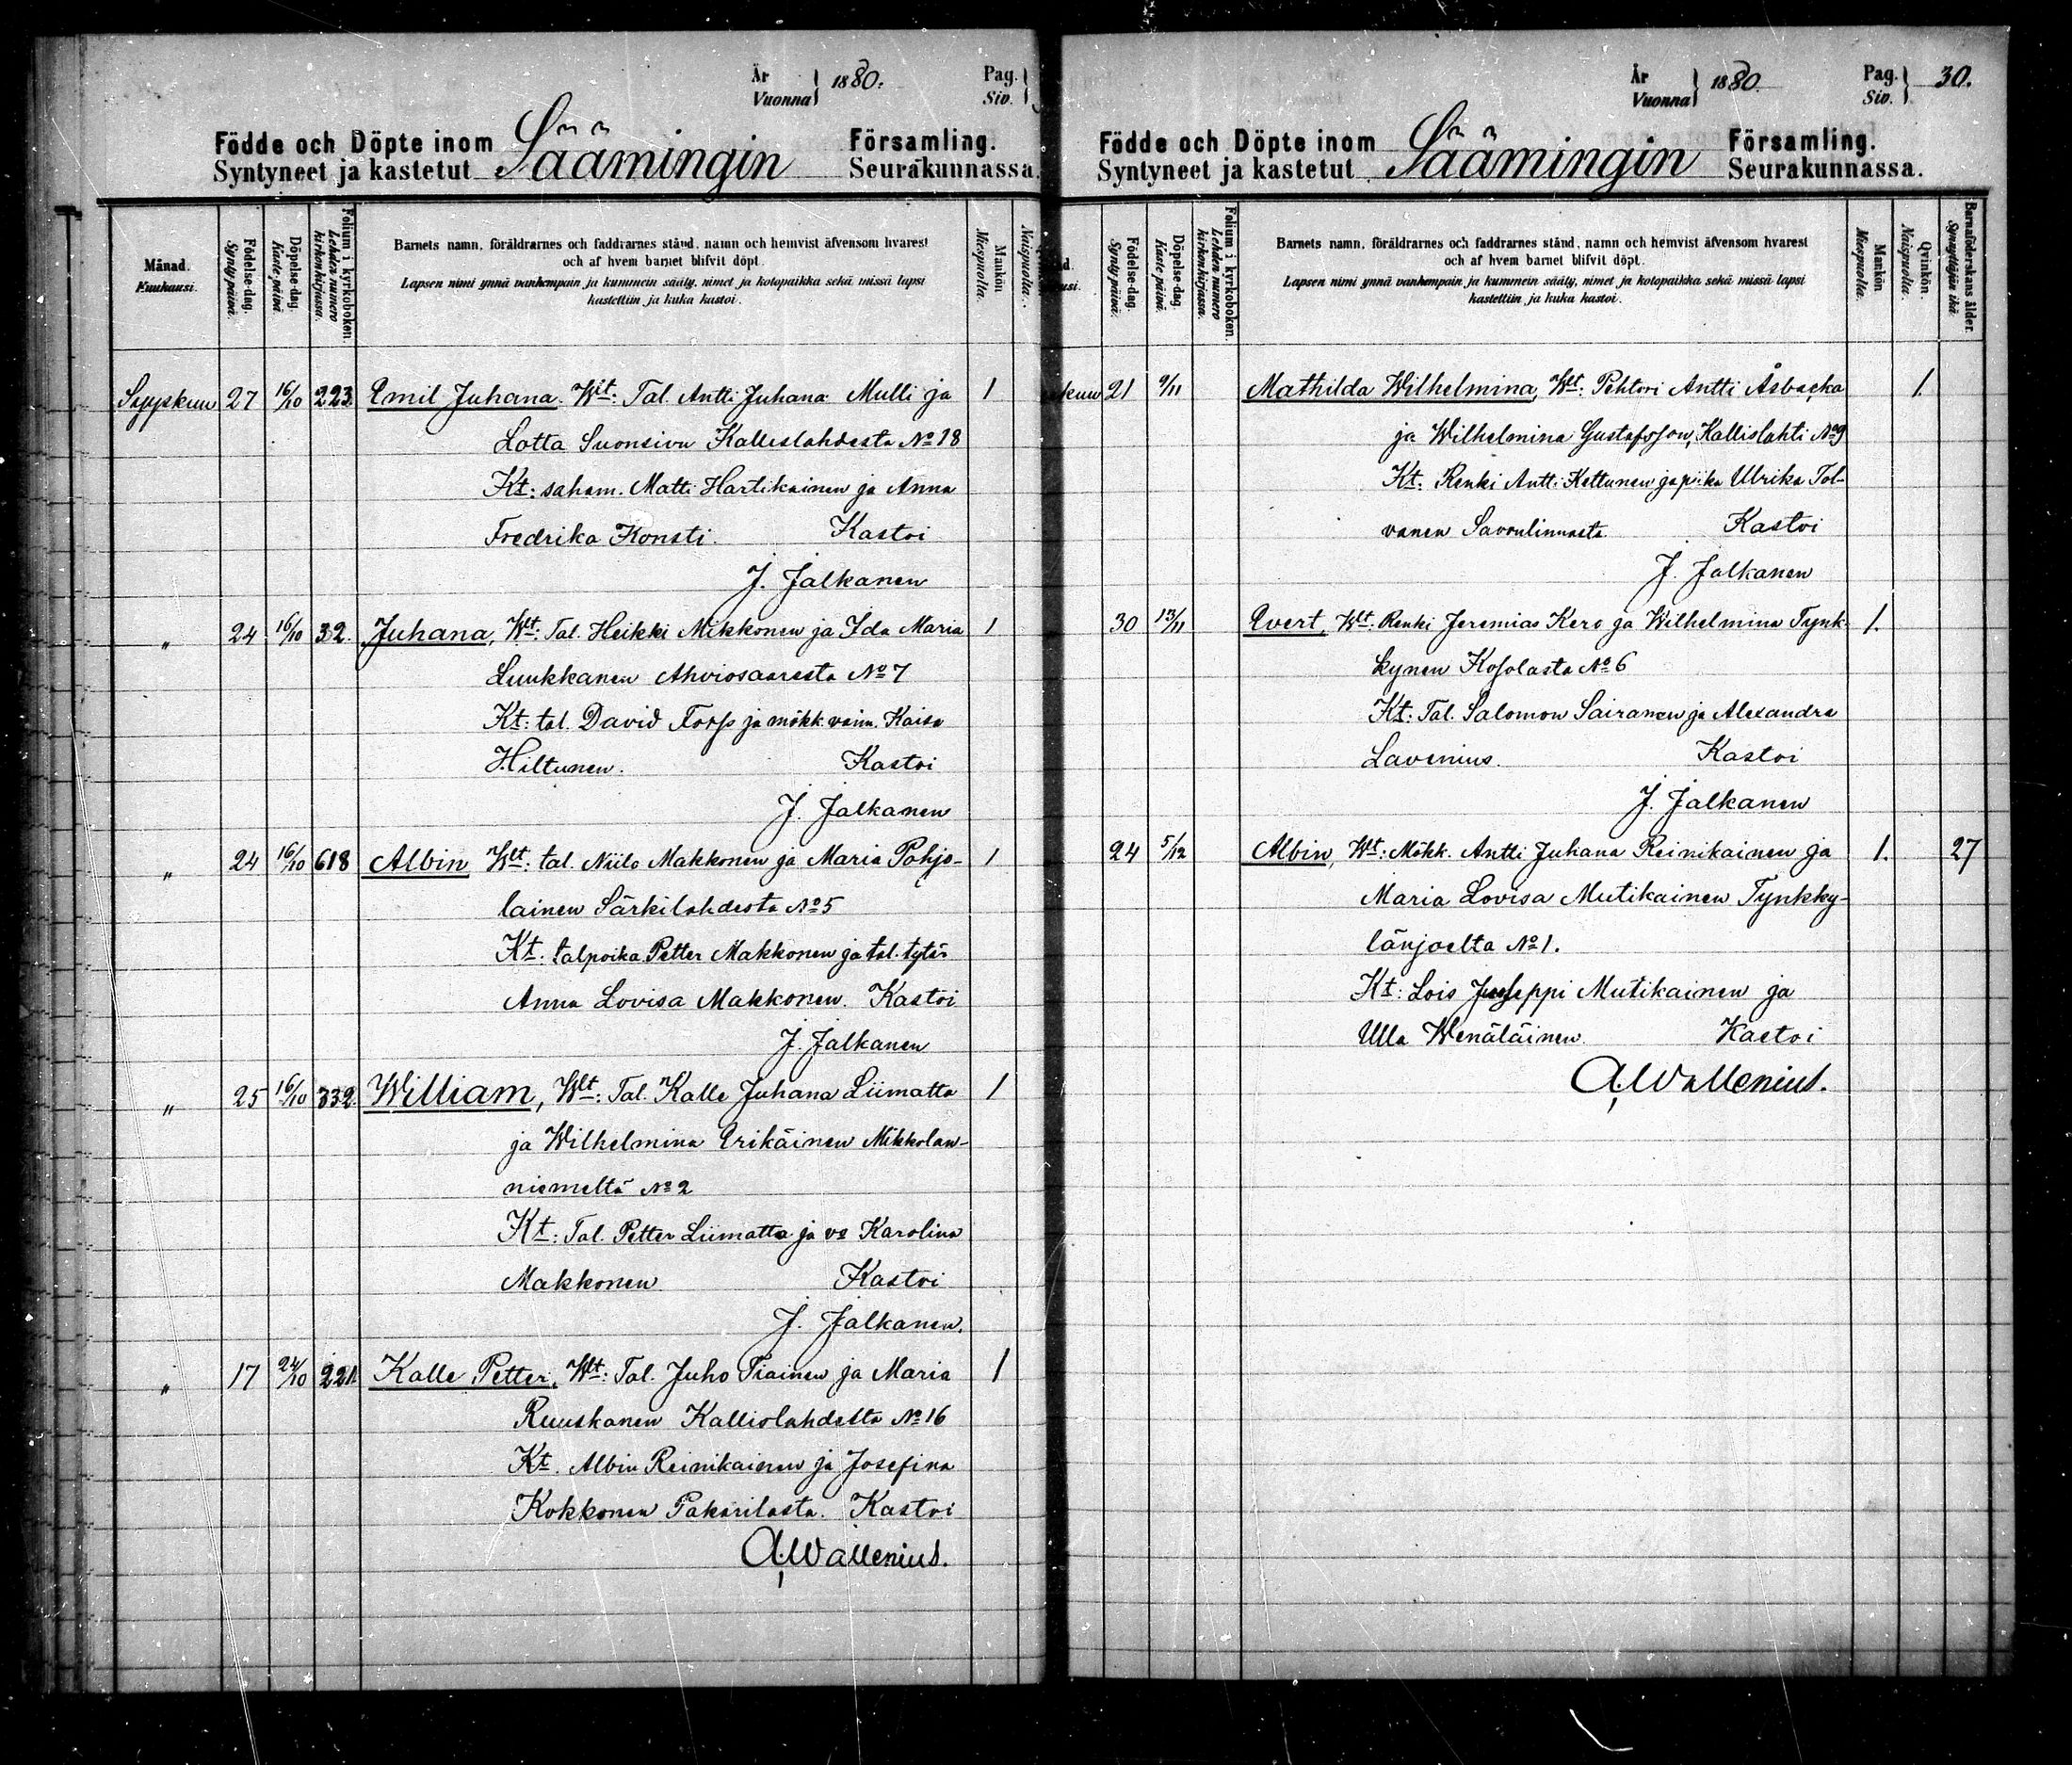 År
Vuonna } 1880.
Pag.
Siv. }
Födde och Döpte inom Säämingin Församling.
Syntyneet ja kastetut Seurakunnassa.
Månad. Kuukausi.
Födelse-dag. Syntypäivä.
Döpelse-dag. Kastepäivä.
Folium i kyrkoboken. Lehden numero kirkonkirjassa.
Barnets namn, föräldrarnes och faddrarnes stånd, namn och hemvist äfvensom hvarest
och af hvem barnet blifvit döpt.
Lapsen nimi ynnä vanhempain ja kummein sääty, nimet ja kotopaikka sekä missä lapsi
kastettiin ja kuka kastoi.
Mankön Miespuolta.
Naispuolta.
Syyskuu 27 16/10 223 Emil Juhana. Wlt: Tal. Antti Juhana Mulli ja 1
Lotta Suonsivu Kallislahdesta No 18
Kt: saham. Matti Hartikainen ja Anna
Fredrika Konsti. Kastoi
J. Jalkanen
" 24 16/10 32. Juhana, Wlt: Tal. Heikki Mikkonen ja Ida Maria 1
Luukkanen Ahviosaaresta No 7
Kt: tal. David Torss ja mökk. vaim. Kaisa
Hiltunen. Kastoi
J. Jalkanen
" 24 16/10 618 Albin Wlt: tal. Niilo Makkonen ja Maria Pohjo- 1
lainen Särkilahdesta No 5
Kt. talpoika Petter Makkonen ja tal. tytär
Anna Lovisa Makkonen. Kastoi
J. Jalkanen
" 25 16/10 332. William, Wlt: Tal. Kalle Juhana Liimatta 1
ja Wilhelmina Erikäinen Mikkolan-
niemeltä No 2
Kt: Tal. Petter Liimatta ja vo Karolina
Makkonen Kastoi
J. Jalkanen.
" 17 24/10 221. Kalle Petter, Wlt: Tal. Juho Tiainen ja Maria 1
Ruuskanen Kalliolahdesta No 16
Kt. Albin Reinikainen ja Josefina
Kokkonen Pakarilasta. Kastoi
A. Wallenius.
År
Vuonna } 1880.
Pag.
Siv. } 30.
Födde och Döpte inom Säämingin Församling.
Syntyneet ja kastetut Seurakunnassa.
Födelse-dag. Syntypäivä.
Döpelse-dag. Kastepäivä.
Folium i kyrkoboken. Lehden numero kirkonkirjassa.
Barnets namn, föräldrarnes och faddrarnes stånd, namn och hemvist äfvensom hvarest
och af hvem barnet blifvit döpt.
Lapsen nimi ynnä vanhempain ja kummein sääty, nimet ja kotopaikka sekä missä lapsi
kastettiin ja kuka kastoi.
Mankön Miespuolta.
Qvinkön. Naispuolta.
Barnaföderskans ålder. Synnyttäjän ikä.
kuu 21 9/11 Mathilda Wilhelmina, Wlt: Pehtori Antti Åsbacka 1.
ja Wilhelmina Gustafsson, Kallislahti No 9
Kt: Renki Antti Kettunen ja piika Ulrika Tol-
vanen Savonlinnasta. Kastoi
J. Jalkanen
30 13/11 Evert, Wlt. Renki Jeremias Kero ja Wilhelmina Tynk- 1.
kynen Kosolasta No 6
Kt: Tal. Salomon Sairanen ja Alexandra
Lavenius. Kastoi
J. Jalkanen
24 5/12 Albin, Wlt: Mökk. Antti Juhana Reinikainen ja 1. 27
Maria Lovisa Mutikainen Tynkky-
länjoelta No 1.
Kt: Lois Juseppi Mutikainen ja
Ulla Wenäläinen. Kastoi
A. Wallenius.